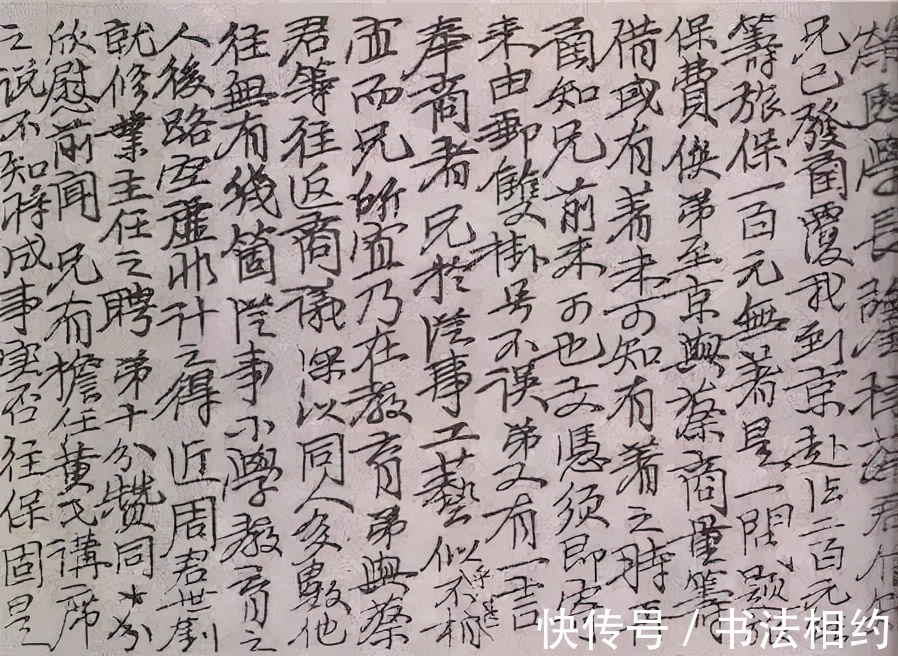 榮熙學長
兄已發函覆我到京赴法二百元能
籌旅保一百元無著是一問題旅
保費俟弟至京與蔡商量籌
借或有著未可知有著之時再
函知兄前來可也文憑須即寄
來由郵雙掛号不误弟又有一言
奉商者兄於從事工藝似乎不甚相
宜而兄所宜乃在教育弟與蔡
君等往返商議深以同人多數他
往無有幾箇從事小學教育之
人後路空虛非計之得近周君世釗
就修業主任之聘弟十分贊同十分
欣慰前聞兄有擔任黃氏講席
之說不知將成事实否往保固是
快传号 / 书法相约